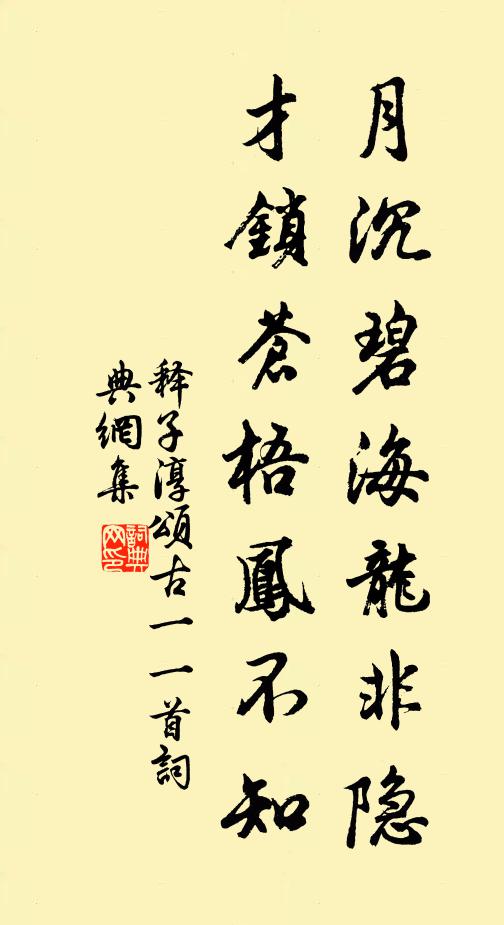 月沉碧海龍非隐
才鎖蒼梧鳳不知
释子淳頌古一一首詞
典網集
詞典